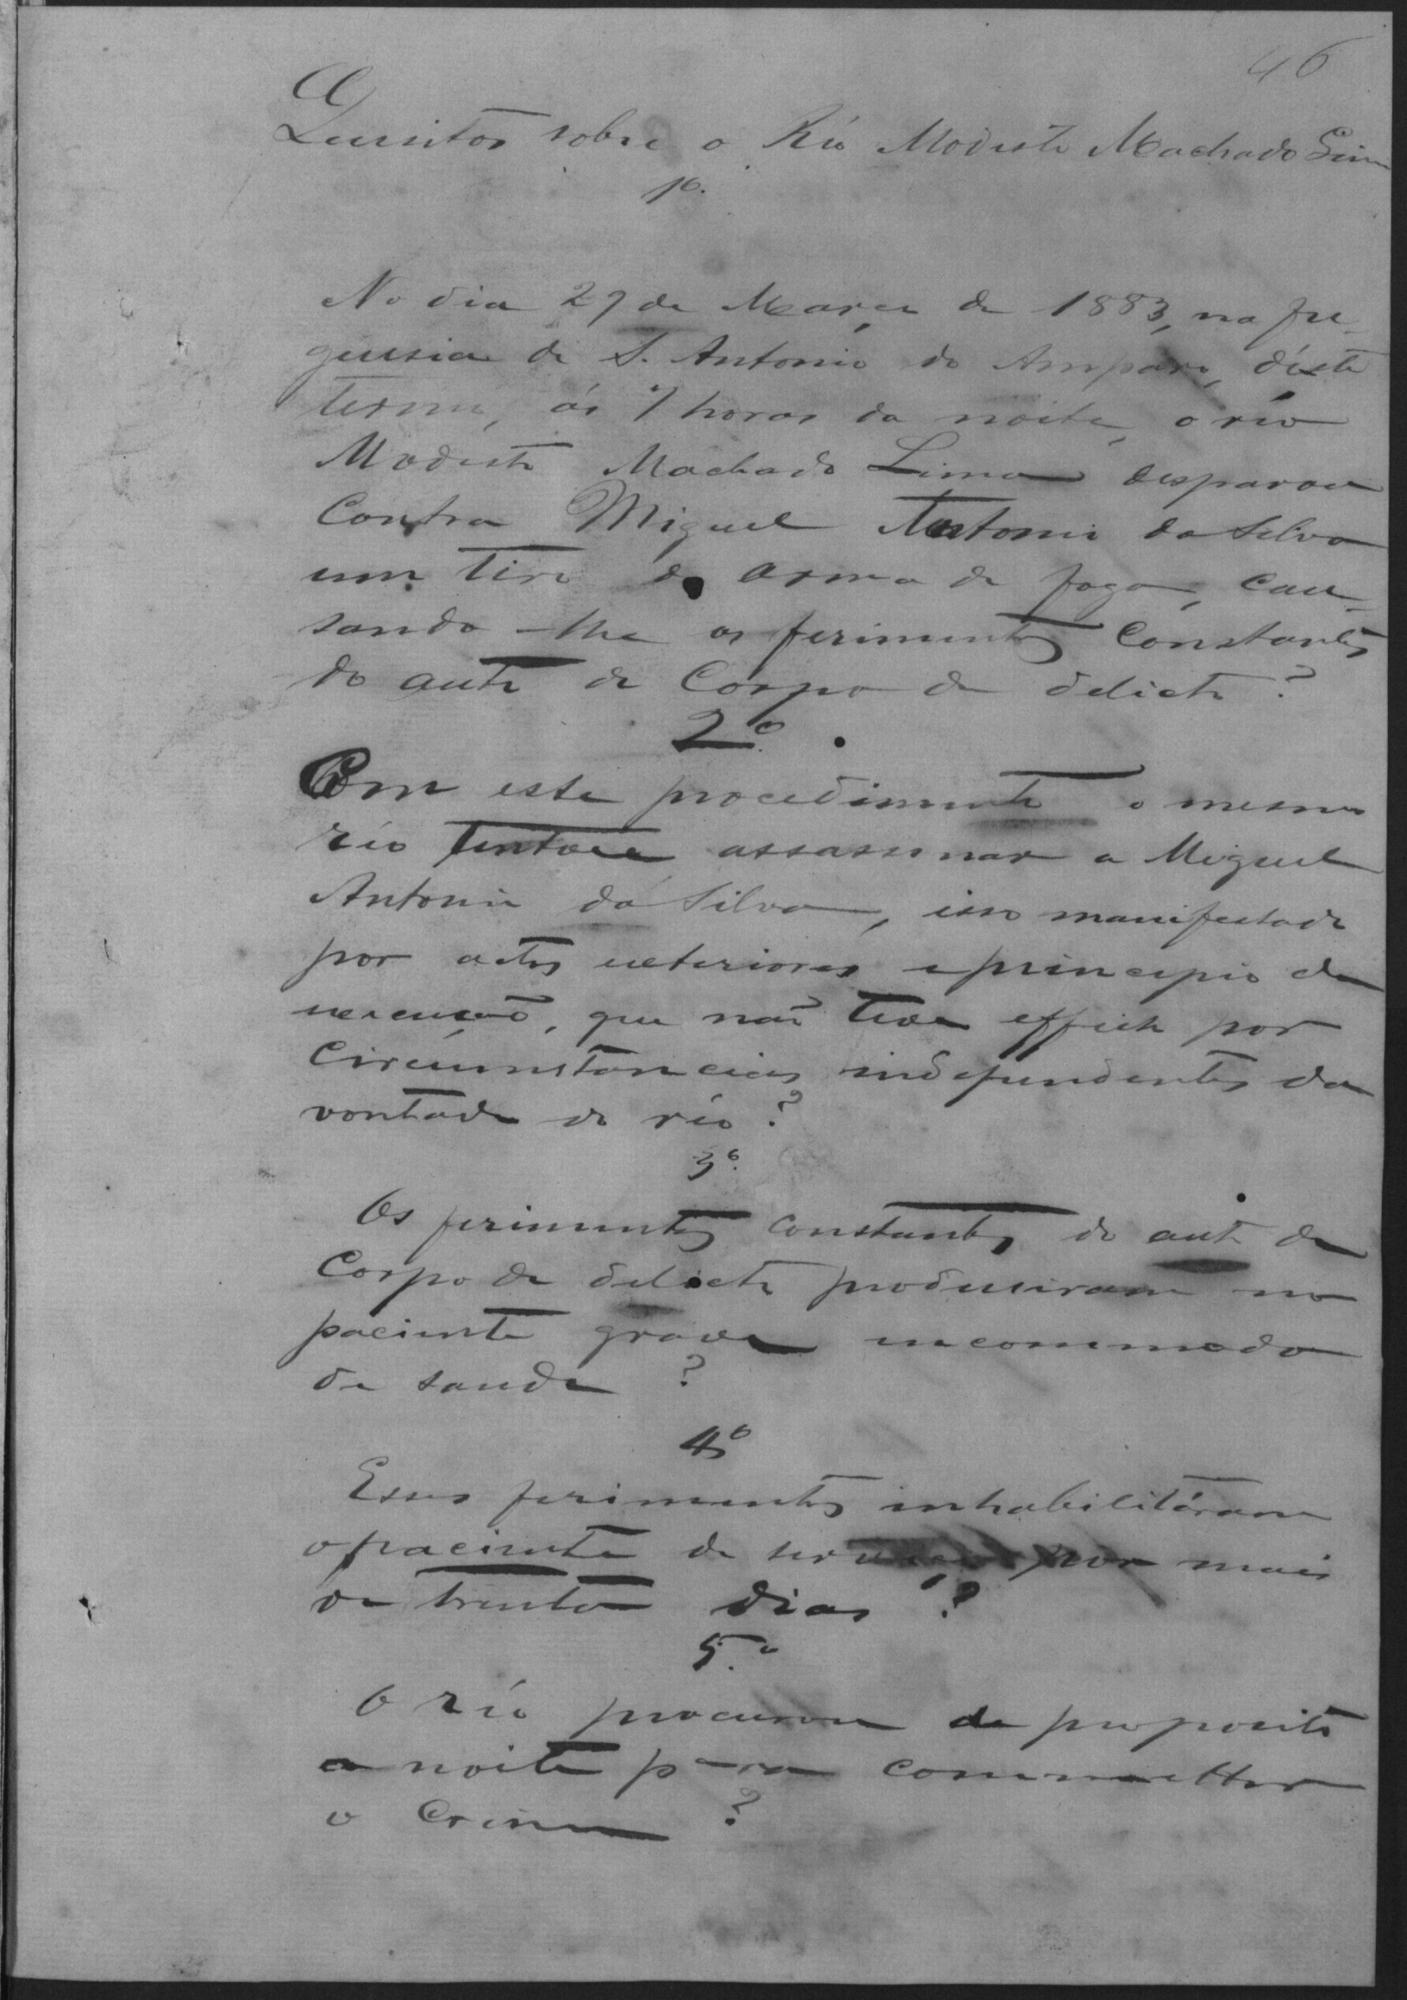 46
Quesitos sobre o Réo Modesto Machado Lima
1º.
No dia 27 de Março de 1883, na fre-
guesia de S. Antonio do Amparo, déste
termo, ás 7 horas da noite, o réo
Modesto Machado Lima disparou
contra Miguel Antonio da Silva
um tiro de arma de fogo, cau-
sando-lhe os ferimentos constantes
do auto de corpo de delicto?
2º.
Com este procedimento o mesmo
réo tentou assassinar a Miguel
Antonio da Silva, isso manifestado
por actos exteriores e principio de
execução, que não teve effeito por
circumstancias independentes da
vontade do réo?
3º.
Os ferimentos constantes do auto de
corpo de delicto produsiram no
paciente grave incommodo
de saude?
4º
Esses ferimentos inhabilitáram
o paciente de serviço por mais
de trinta dias?
5.º
O réo procurou de proposito
a noite para commetter
o crime?